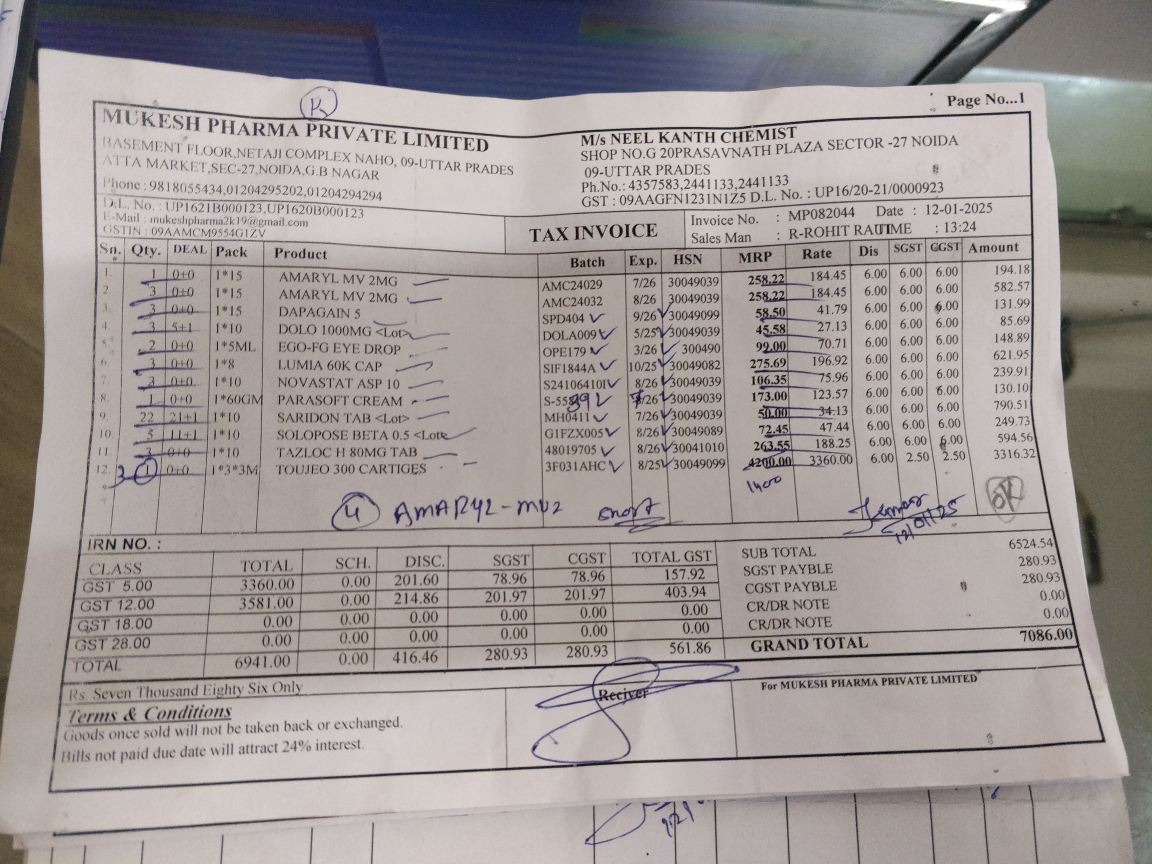 K
Page No...1
MUKESH PHARMA PRIVATE LIMITED
BASEMENT FLOOR,NETAJI COMPLEX NAHO, 09-UTTAR PRADES
ATTA MARKET,SEC-27,NOIDA,G.B NAGAR
Phone : 9818055434,01204295202,01204294294
D.L., No. : UP1621B000123,UP1620B000123
E-Mail : mukeshpharma2k19@gmail.com
GSTIN : 09AAMCM9554G1ZV
M/s NEEL KANTH CHEMIST
SHOP NO.G 20PRASAVNATH PLAZA SECTOR -27 NOIDA
09-UTTAR PRADES
Ph.No.: 4357583,2441133,2441133
GST : 09AAGFN1231N1Z5 D.L. No. : UP16/20-21/0000923
TAX INVOICE
Invoice No. : MP082044 Date : 12-01-2025
Sales Man : R-ROHIT RAUTIME : 13:24
Sn. Qty. DEAL Pack Product Batch Exp. HSN MRP Rate Dis SGST CGST Amount
1. 1 0+0 1*15 AMARYL MV 2MG AMC24029 7/26 30049039 258.22 184.45 6.00 6.00 6.00 194.18
2. 3 0+0 1*15 AMARYL MV 2MG AMC24032 8/26 30049039 258.22 184.45 6.00 6.00 6.00 582.57
3. 3 0+0 1*15 DAPAGAIN 5 SPD404 9/26 30049099 58.50 41.79 6.00 6.00 6.00 131.99
4. 3 5+1 1*10 DOLO 1000MG <Lot> DOLA009 5/25 30049039 45.58 27.13 6.00 6.00 6.00 85.69
5. 2 0+0 1*5ML EGO-FG EYE DROP OPE179 3/26 300490 99.00 70.71 6.00 6.00 6.00 148.89
6. 3 0+0 1*8 LUMIA 60K CAP SIF1844A 10/25 30049082 275.69 196.92 6.00 6.00 6.00 621.95
7. 3 0+0 1*10 NOVASTAT ASP 10 S24106410I 8/26 30049039 106.35 75.96 6.00 6.00 6.00 239.91
8. 1 0+0 1*60GM PARASOFT CREAM 392 7/26 30049039 173.00 123.57 6.00 6.00 6.00 130.10
9. 22 21+1 1*10 SARIDON TAB <Lot> MH0411 7/26 30049039 50.00 34.13 6.00 6.00 6.00 790.51
10. 5 11+1 1*10 SOLOPOSE BETA 0.5 <Lot> G1FZX005 8/26 30049089 72.45 47.44 6.00 6.00 6.00 249.73
11 3 0+0 1*10 TAZLOC H 80MG TAB 48019705 8/26 30041010 263.55 188.25 6.00 6.00 6.00 594.56
12. 3 1 0+0 1*3*3M TOUJEO 300 CARTIGES 3F031AHC 8/25 30049099 4200.00 3360.00 6.00 2.50 2.50 3316.32
1400
4 AMARYL-MV2 short
12/01/25
OK
IRN NO. :
CLASS TOTAL SCH. DISC. SGST CGST TOTAL GST
GST 5.00 3360.00 0.00 201.60 78.96 78.96 157.92
GST 12.00 3581.00 0.00 214.86 201.97 201.97 403.94
GST 18.00 0.00 0.00 0.00 0.00 0.00 0.00
GST 28.00 0.00 0.00 0.00 0.00 0.00 0.00
TOTAL 6941.00 0.00 416.46 280.93 280.93 561.86
SUB TOTAL 6524.54
SGST PAYBLE 280.93
CGST PAYBLE 280.93
CR/DR NOTE 0.00
CR/DR NOTE 0.00
GRAND TOTAL 7086.00
Rs. Seven Thousand Eighty Six Only
Terms & Conditions
Goods once sold will not be taken back or exchanged.
Bills not paid due date will attract 24% interest.
Reciver
For MUKESH PHARMA PRIVATE LIMITED